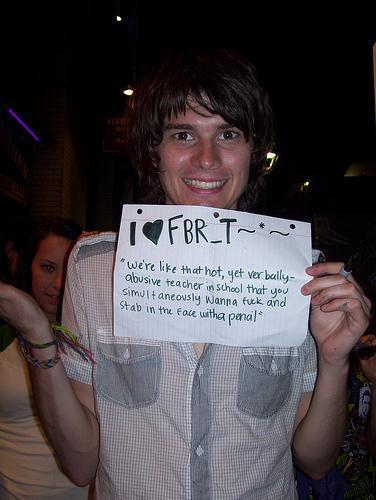 I ♥ FBR_T~*~
"We're like that hot, yet verbally-
abusive teacher in school that you
simultaneously wanna fuck and
stab in the face with a penal"